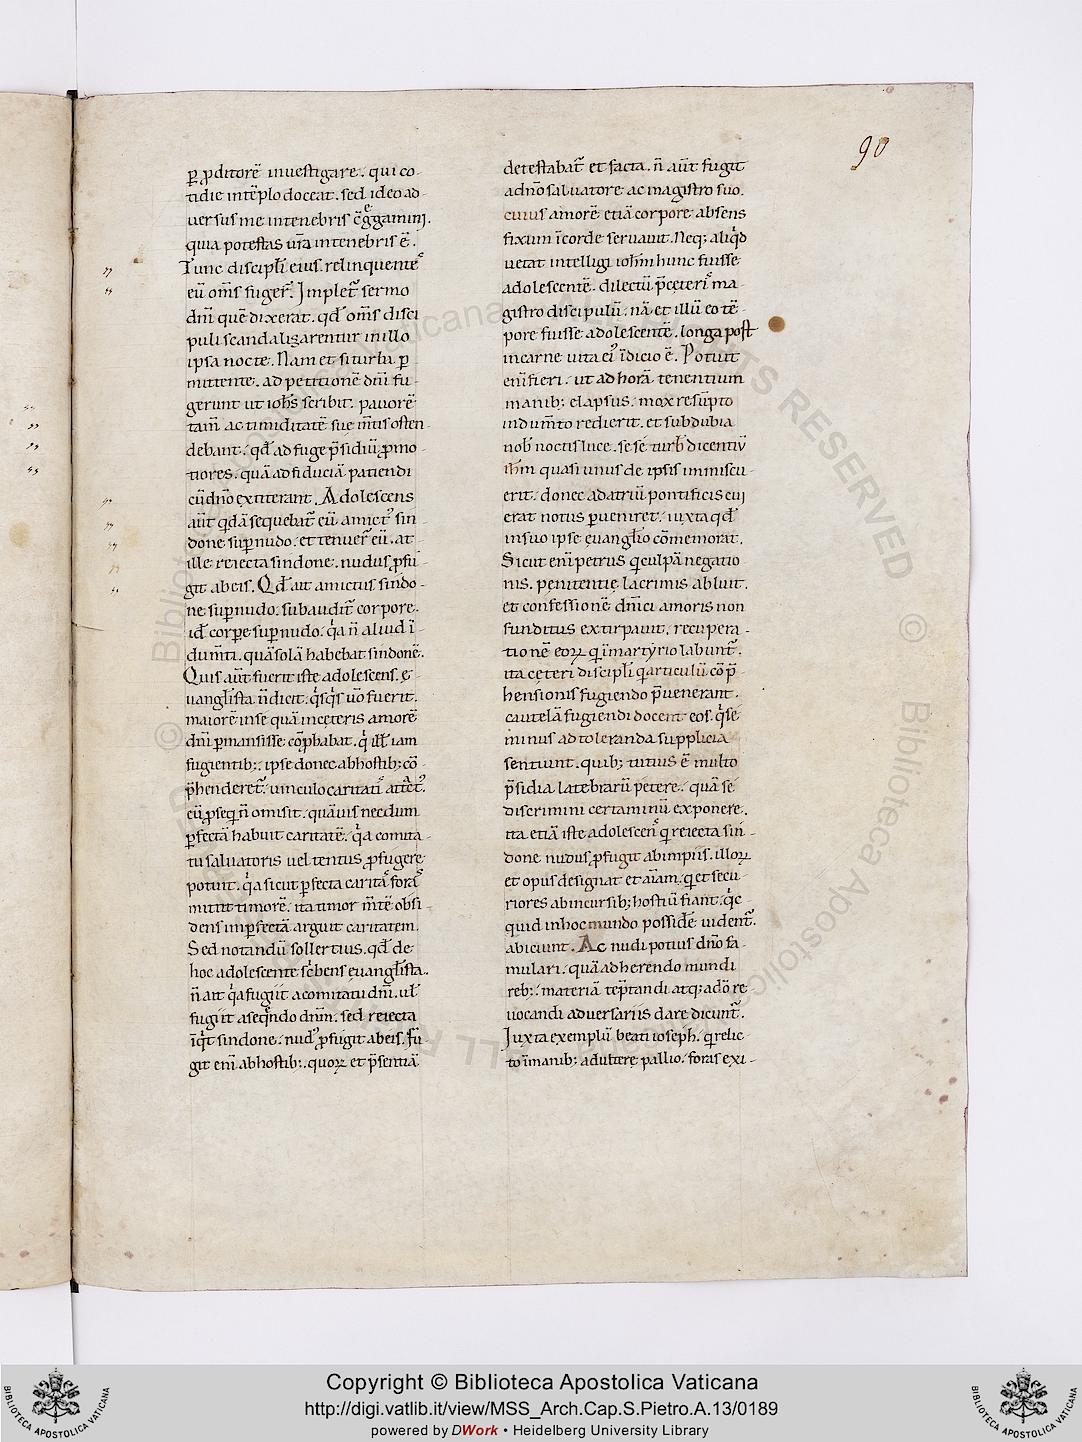 90
ꝑ ꝓditorē inuestigare. qui co-
tidie intēplo doceat. sed ideo ad-
uersus me intenebris c̄gͤgamini.
quia potestas ur̄a intenebris ē.
Tunc discipl̄i eius. relinquentes
eū om̄s fuger̄. Implet̄ sermo
dn̄i quē dixerat. qd̄ om̄s disci
puli scandalizarentur in illo
ipsa nocte. Nam et si turba ꝑ
mittente. ad petitionē dn̄i fu-
gerunt ut ioh̄s scribit. pauorē
tam̄ ac timiditatē suę m̄tis osten-
debant. qd̄ ad fugę p̄sidiū ꝓmp-
tiores. quā ad fiduciā patiendi
cū dn̄o extiterant. Adolescens
aūt qdā sequebat̄ eū amict' sin-
done suꝑ nudo. et tenuer̄ eū. at-
ille reiecta sindone. nudus ꝓfu-
git abeis. Qd̄ ait amictus sindo-
ne suꝑ nudo. subaudit̄ corpore.
id̄ corꝑe suꝑ nudo. qa n̄ aliud ī-
dum̄ti. quā solā habebat sindonē.
Quis aūt fuerit iste adolescens. ę-
uangl̄ista n̄ dicit. qsqs uō fuerit.
maiorē inse quā inceteris amorē
dn̄i ꝑmansisse cōꝓbabat. q ill̄ iam
fugientib; ipse donec abhostib; cō-
p̄henderet̄. uinculo caritatis attct'.
eū ꝓseq n̄ omisit. quāuis necdum
ꝑfectā habuit caritatē. qa comita-
tu saluatoris uel tentus ꝓfugere
potuit. qa sicut ꝑfecta caritas foras
mittit timorē. ita timor m̄tē obsi-
dens imꝑfectā arguit caritatem.
Sed notandū sollertius. qd̄ de
hoc adolescente sc̄bens euangl̄ista.
n̄ ait qa fugiit a comitatu dn̄i. ul̄
fugiit aseqndo dn̄m. sed reiecta
inqt sindone. nud' ꝓfugit abeis. Fu-
git eni abhostib;. quoꝝ et p̄sentiā
detestabat̄ et facta. n̄ aūt fugit
adn̄o saluatore ac magistro suo.
cuius amorē etiā corpore absens
fixum īcorde seruauit. Neq; aliqd
uetat intelligi ioh̄m hunc fuisse
adolescentē. dilectū p̄ceteris ma-
gistro discipulū. nā et illū eo tē-
pore fuisse adolescentē. longa post
incarne uita ei' īdicio ē. Potuit
eni fieri. ut ad horā tenentium
manib; elapsus. mox resūpto
indum̄to redierit. et sub dubia
nob̄ noctis luce. sese turb̄ dicentiū
ih̄m quasi unus de ipsis immiscu-
erit. donec ad atriū pontificis cui
erat notus ꝑueniret. iuxta qd̄
in suo ipse ęuangl̄io cōmemorat.
Sicut eni petrus q culpā negatio-
nis. penitentię lacrimis abluit.
et confessionē dn̄ici amoris non
funditus extirpauit. recupera-
tionē eoꝝ q īmartyrio labunt̄.
ita cęteri discipl̄i q articulū cōp̄-
hensionis fugiendo p̄uenerant.
cautelā fugiendi docent eos. q se
minus ad toleranda supplicia
sentiunt. quib; tutius ē multo
p̄sidia latebrarū petere. quā se
discrimini certaminū exponere.
ita etiā iste adolescens q reiecta sin-
done nudus ꝓfugit ab impiis. illoꝝ
et opus designat et aīam. q et secu-
riores abincursib; hostiū fiant. qc
quid inhoc mundo possidē uident̄.
abiciunt. Ac nudi potius dn̄o fa-
mulari. quā adherendo mundi
reb; materiā tēptandi atq; adō re-
uocandi aduersariis dare dicunt̄.
Iuxta exemplū beati ioseph. q relic-
to īmanib; adulterę pallio. foras exi-
© Biblioteca Apostolica Vaticana ALL RIGHTS RESERVED © Biblioteca Apostolica Vaticana ALL RIGHTS RESERVED
BIBLIOTECA APOSTOLICA VATICANA
Copyright © Biblioteca Apostolica Vaticana
http://digi.vatlib.it/view/MSS_Arch.Cap.S.Pietro.A.13/0189
powered by DWork • Heidelberg University Library
BIBLIOTECA APOSTOLICA VATICANA